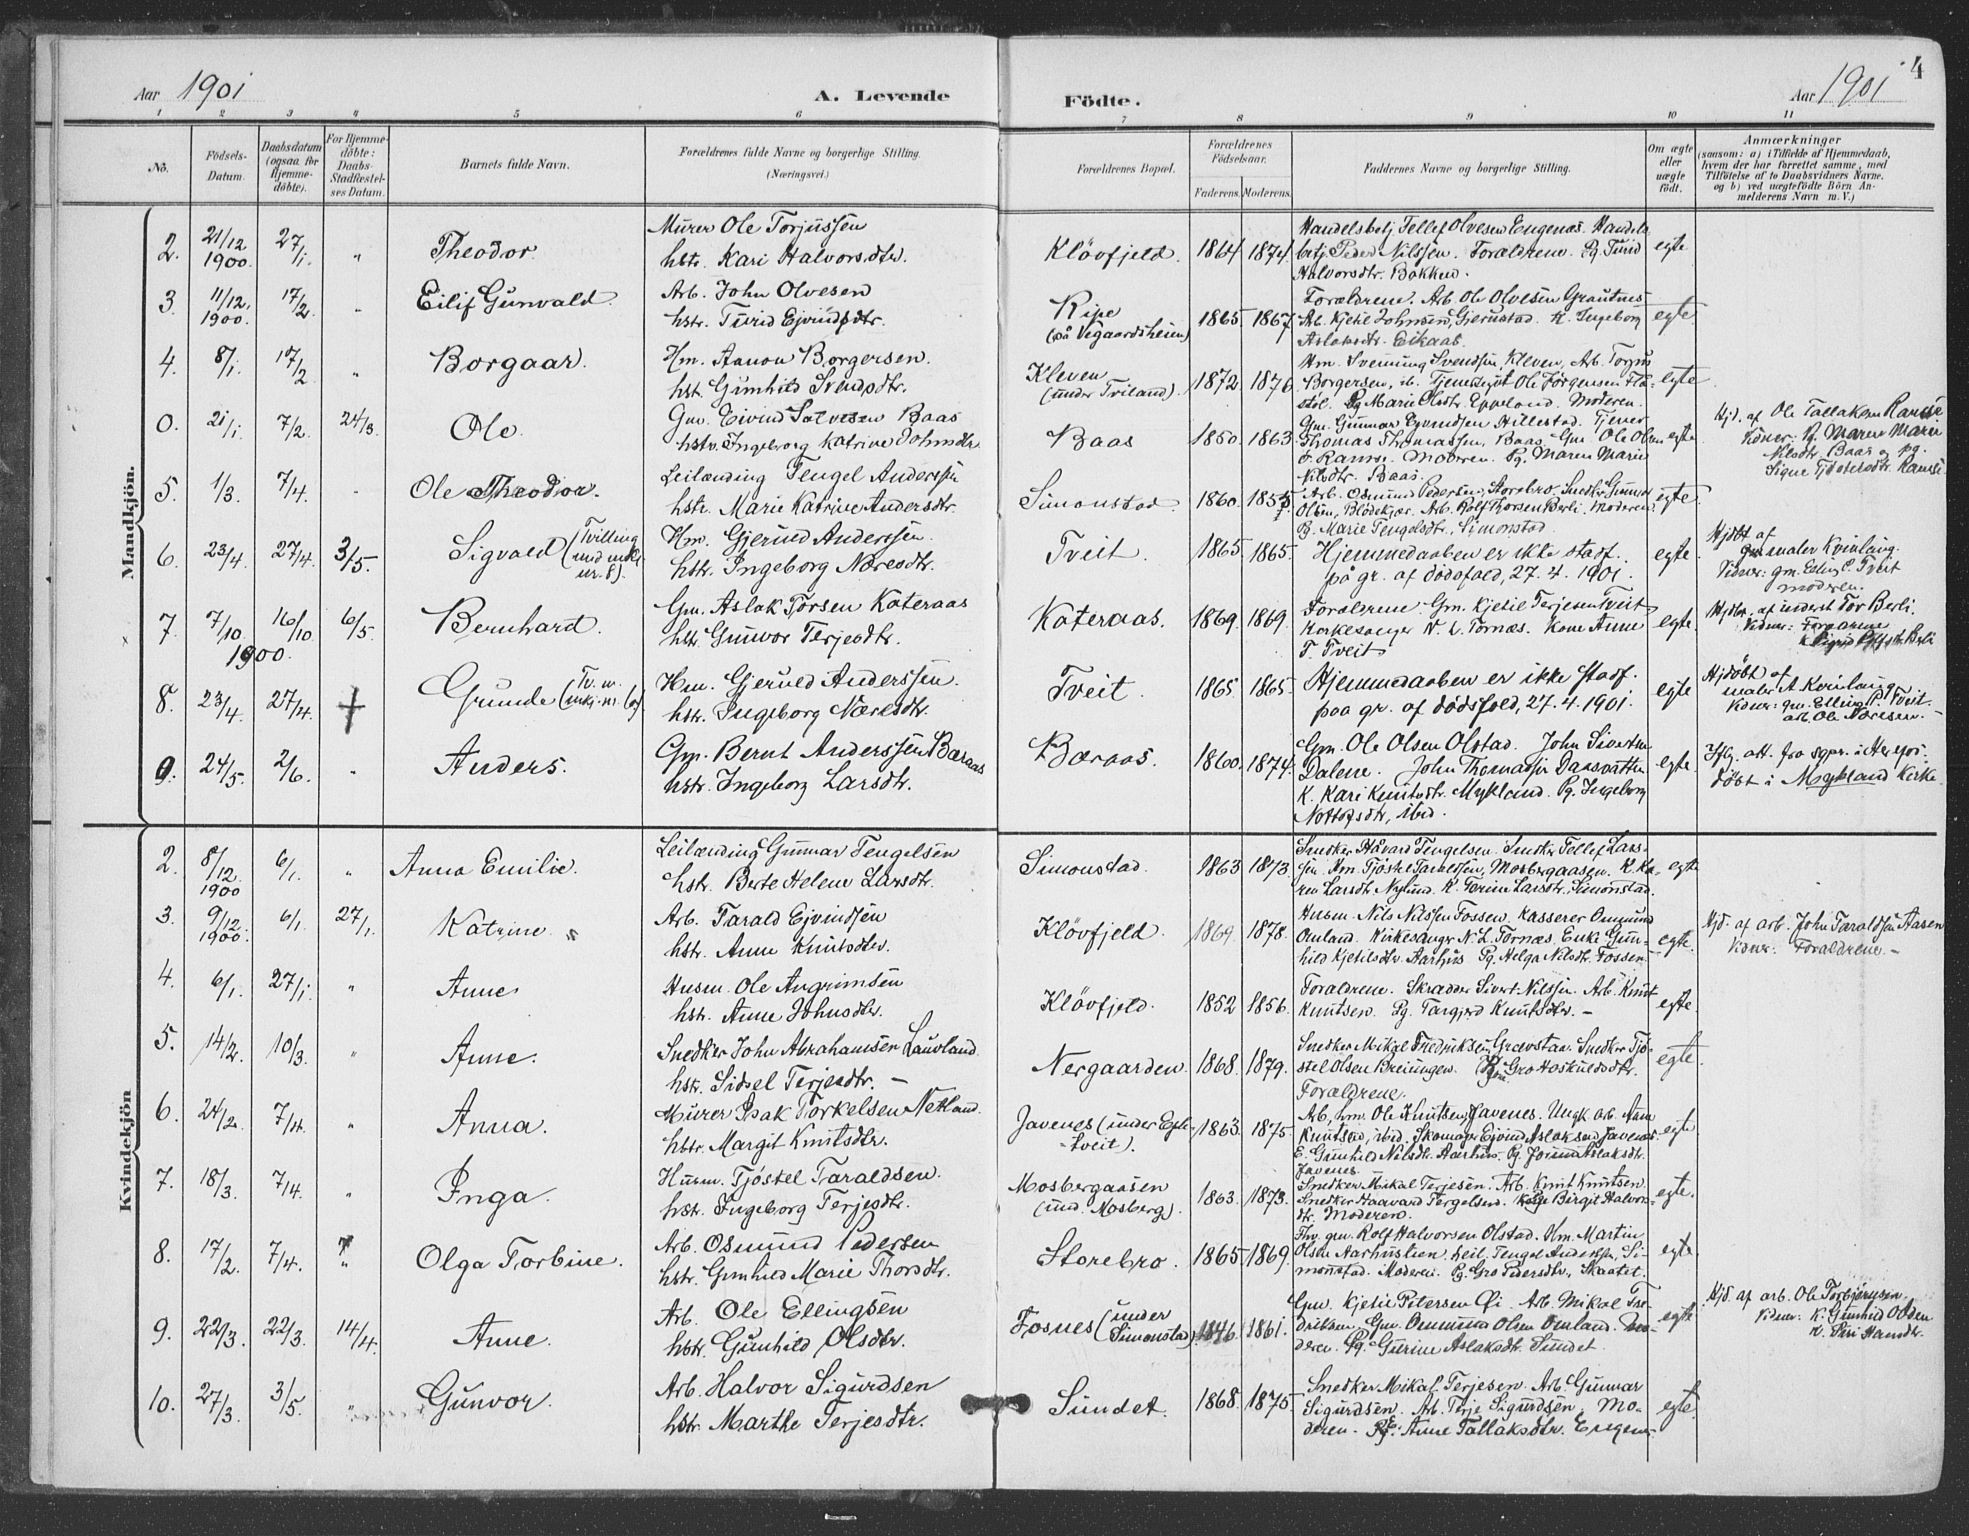 Aar 1901
A. Levende
Födte.
Aar 1901
4
1 2 3 4 5 6 7 8 9 10 11
No.
Födsels-
Datum.
Daabsdatum
(ogsaa for
Hjemme-
döbte).
For Hjemme-
döbte:
Daabs-
Stadfæstel-
ses Datum.
Barnets fulde Navn.
Forældrenes fulde Navne og borgerlige Stilling.
(Næringsvei.)
Forældrenes Bopæl.
Forældrenes
Födselsaar.
Faderens. Moderens.
Faddernes Navne og borgerlige Stilling.
Om ægte
eller
uægte
födt.
Anmærkninger
(saasom: a) i Tilfælde af Hjemmedaab,
hvem der har forrettet samme, med
Tilföielse af to Daabsvidners Navne.
og b) ved uægtefödte Börn An-
melderens Navn m. V.)
Mandkjön.
2. 21/12 1900. 27/1. " Theodor.
Murer Ole Torjussen
hstr. Kari Halvorsdtr.
Klövfjeld. 1864 1874.
Handelsbetj Tellef Olvesen Engenæs. Handels
betj. Peder Nilssen. Forældrene. Pg. Turid
Halvorsdtr. Bakken.
egte
3. 11/12. 1900. 17/2. " Eilif Gunvald
Arb. John Olvesen
hstr. Turid Ejvindsdtr.
Ripe
(på Vegaardsheien)
1865. 1867.
Forældrene. Arb. Ole Olvesen Grautnes
Arb. Kjetil Johnsen, Gjerustad. K. Ingeborg
Aslaksdtr. Eikaas.
egte
4. 8/1. 17/2 " Borgaar.
Hm. Aanon Borgersen.
hst. Gunhild Svendsdtr.
Kleven
(under Tviland).
1872 1876.
Hm. Svenning Svendsen, Kleven, Arb. Torjus
Borgersen, ib. Tjenestegut Ole Jörgensen
stöl. Pg Marie Olsdtr. Eppeland. Moderen.
egte
0. 21/1. 7/2. 24/3. Ole.
Gm. Eivind Salvesen Baas
hstr. Ingeborg Katrine Johnsdtr
Baas 1850. 1863.
Gm. Gunnar Eyvindsen Hillestad. Tjener
Thomas Thomassen, Baas. Gm Ole Olsen
Ramse. Moderen. Pg. Maren Marie
Nilsdtr. Baas.
egte
Hjd. af Ole Tallaksen Ramse
Vidner: Pg. Maren Marie
Nilsdtr. Baas og pg.
Signe Ramse
5. 1/3. 7/4. " Ole Theodor.
Leilænding Tengel Anderssen
hstr. Marie Katrine Andersdtr.
Simonstad. 1860. 1855.
Arb. Osmund Pedersen, Storebro. Snedker Gunnar
Olsen, Blödekjær. Arb. Rolf Thorsen Berli. Moderen.
Pg. Marie Tengelsdtr, Simonstad.
egte.
6. 23/4. 27/4. 3/5. Sigvald (Tvilling
med
nr. 8).
Hm. Gjerued Anderssen.
hstr. Ingeborg Næresdtr.
Tveit. 1865. 1865.
Hjemmedaaben er ikke stadf.
på gr. af dödsfald, 27.4.1901.
egte
Hjdbt af
maler Kvinlaug.
Vidner: gm. Elling P. Tveit
moderen.
7. 7/10. 1900. 16/10. 6/5. Bernhard.
Gm. Aslak Torsen Kateraas
hstr Gunvor Terjesdtr.
Kateraas. 1869. 1869.
Forældrene. Gm. Kjetil Terjesen Tveit
Kirkesanger N. L. Tornæs. Kone Anne
T. Tveit.
egte.
Hjdbt. af inderst Tor Berli.
Vidner: Forældrene
8. 23/4. 27/4. † Grunde (Tv. m.
Hm. Gjerued Anderssen.
hstr. Ingeborg Næresdtr.
Tveit. 1865 1865.
Hjemmedaaben er ikke stadf.
paa gr. af dödsfald, 27.4.1901.
egte
Hjdöbt af
maler A Kvinlaug
Vidner: gm. Elling P. Tveit.
arb. Ole Næresen. -
9. 24/5. 2/6. " Anders.
Gm. Bernt Anderssen Bæraas
hstr. Ingeborg Larsdtr.
Bæraas. 1860. 1874.
Gm. Ole Olsen Olstad. John Sivertsen
Dalene. John Thomassen
K. Kari Knutsdtr. Mykland. Pg. Ingeborg
Nottosdtr, ibid.
egte.
Iflg. att. fra sgpr. i Herefos.
Döbt i Mykland Kirke.
Kvindekjön
2. 8/12. 1900 6/1. " Anna Emilie.
Leilænding Gunnar Tengelsen
hstr. Berte Helene Larsdtr.
Simonstad. 1863 1873.
Snedker Håvard Tengelsen. Snedker Tellef Lars-
sen. Hm. Tjöstel Taraldsen, Mosbergaasen. K. Ka-
ren Larsdtr Nylund. K. Terine Larsdtr, Simonstad.
egte
3. 9/12. 1900. 6/1. 27/1. Katrine.
Arb. Tarald Ejvindsen
hstr. Anne Knutsdtr.
Klövfjeld. 1869. 1878.
Husm. Nils Nilssen Fossen. Kasserer Omund
Omland. Kirkesanger N. L. Tornæs. Enke Gun-
hild Kjetilsdtr. Aarhus. Pg. Helga Nilsdtr. Fossen.
egte.
Hjd. af arb. John Taraldsen Aasen
Vidner. Forældrene. -
4. 6/1. 27/1. " Anne
Husm. Ole Angrimsen
hstr. Anne Johnsdtr.
Klövfjeld. 1852 1856.
Forældrene. Skrædder Sivert Nilssen. Arb. Knut
Knutsen. Pg. Targjerd Knutsdtr. -
egte
5. 14/2. 10/3. " Anne.
Snedker John Abrahamsen Lauvland.
hstr. Sidsel Terjesdtr. -
Nergaarden 1868. 1879.
Snedker Mikal Fredriksen, Snedker Tjö-
stel Olsen Breiungen. Gro Hoskuldsdtr.
Forældrene.
egte.
6. 24/2. 7/4. " Anna.
Murer Isak Torkelsen Netland.
hstr. Margit Knutsdtr.
Javenes (under Egde-
tveit).
1863. 1875.
Arb, hm. Ole Knutsen, Javenes. Ungk arb Aanon
Knutsen, ibid. Skomager Ejvind Aslaksen Javenes.
E. Gunhild Nilsdtr. Aarhus. Pg. Jorunn Aslaksdtr.
Javenes.
egte
7. 18/3. 7/4. " Inga.
Husm. Tjöstel Taraldsen.
hstr. Ingeborg Terjesdtr.
Mosbergaasen
(und. Mosberg).
1863. 1873.
Snedker Mikal Terjesen. Arb. Knut Knutsen
Snedker Haavard Tergelsen. Birgit Halvors-
dtr. Moderen.
egte.
8. 17/2. 7/4. " Olga Torbine.
Arb. Osmund Pedersen
hstr. Gunhild Marie Thorsdtr.
Storebro. 1865. 1869.
Fhv. gm. Rolf Halvorsen Olstad. Hm. Martin
Olsen Aarhuslien, Leil. Tengel Anderssen, Si-
monstad. Moderen. Pg. Gro Pedersdtr, Skaatet.
egte
9. 22/3. 22/3. 14/4. Anne.
Arb. Ole Ellingsen
hstr. Gunhild Olsdtr.
Fosnes (under
Simonstad).
1846. 1861.
Gm. Kjetil Petersen Öi. Arb. Mikal Fre-
driksen, Gm. Ommund Olsen Omland. Mo-
deren. Pg. Gurine Aslaksdtr. Sundet.
egte
Hjd. af arb. Ole Torbjörnsen.
Vidner: K. Gunhild
K. Siri Hansdtr.
10. 27/3. 3/5. " Gunvor.
Arb. Halvor Sigurdsen
hstr. Marthe Terjesdtr.
Sundet. 1868. 1875.
Snedker Mikal Terjesen. Arb. Gunnar
Sigurdsen. Arb. Terje Sigurdsen. Mo-
deren. Anne Tallaksdtr. Engenes.
egte.